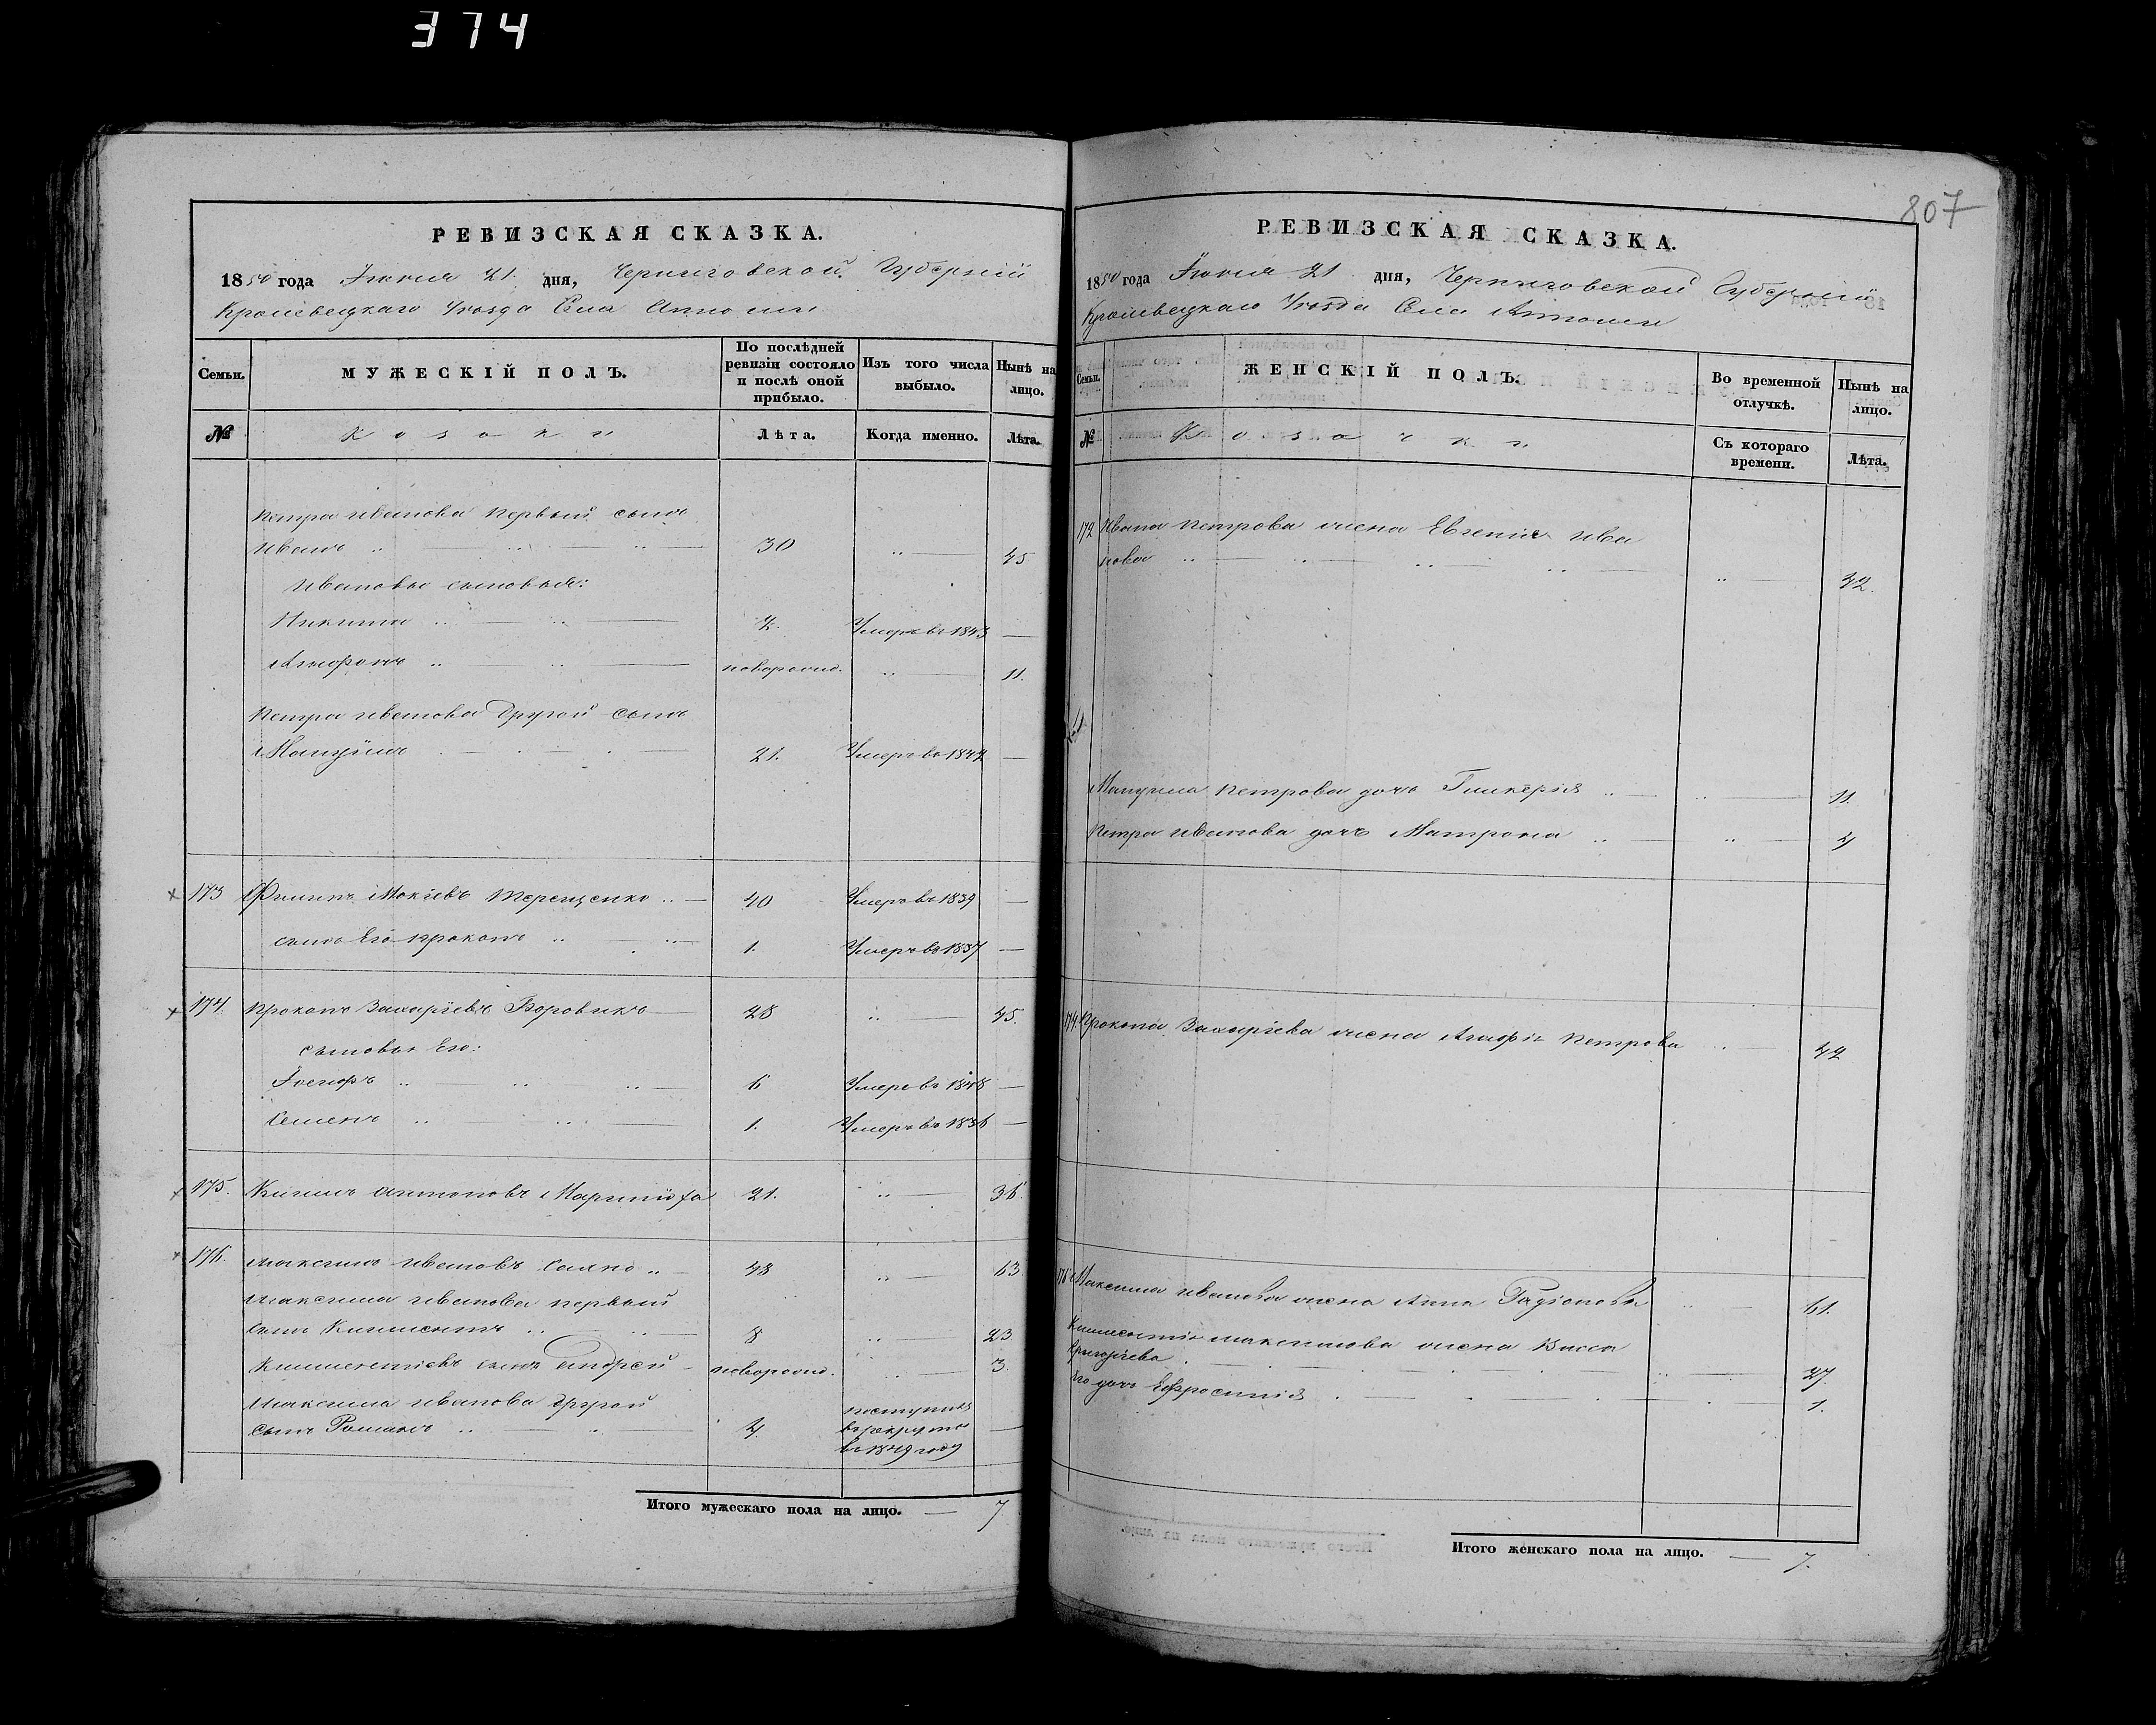 374
807
РЕВИЗСКАЯ СКАЗКА.
1850 года Іюня 21 дня, Черниговской Губерніи
Кролевецкаго Уѣзда Села
Семьи.
МУЖЕСКІЙ ПОЛЪ.
По послѣдней ревизіи состояло и послѣ оной прибыло.
Изъ того числа выбыло.
Нынѣ на лицо.
№
Козаки
Лѣта.
Когда именно.
Лѣта.
Петра Иванова первый сынъ
Иванъ 30 45
Ивановы сыновья:
Никита 4. Умеръ въ 1843 —
новорожд. 11.
Петра Иванова другой сынъ
Мануйлъ 21. Умеръ въ 1844 —
173 Филипъ Мокіевъ Терещенко 40 Умеръ въ 1839 —
сынъ Его Прокопъ 1. Умеръ въ 1837 —
174. Прокопъ Захаріевъ Боровикъ 28 45.
сыновья Его:
Іосифъ 6 Умеръ въ 1848 —
Семенъ 1. Умеръ въ 1836 —
175. Антоновъ 21. 36.
176. Максимъ Ивановъ Сахно 48 63
Максима Иванова первый
сынъ Климентъ 8 23
Климентіевъ сынъ Андрей новорожд. 3.
Максима Иванова другой
сынъ Романъ 4. поступилъ
въ рекруты —
въ 1849 году
Итого мужескаго пола на лицо. — 7
РЕВИЗСКАЯ СКАЗКА.
1850 года Іюня 21 дня, Черниговской Губерніи
Кролевецкаго Уѣзда Села
Семьи.
ЖЕНСКІЙ ПОЛЪ.
Во временной отлучкѣ.
Нынѣ на лицо.
№
Козачки
Съ котораго времени.
Лѣта.
172 Ивана Петрова жена Евгенія Ива
нова 42.
Мануила Петрова дочь Гликерія 11.
Петра Иванова дочь Матрона 4
174. Прокопа Захаріева жена Агафія Петрова 42
176 Максима Иванова жена Анна Радіонова 61.
Климентія Максимова жена Васса
Григоріева 27.
Его дочь Ефросинія 1.
Итого женскаго пола на лицо. — 7.